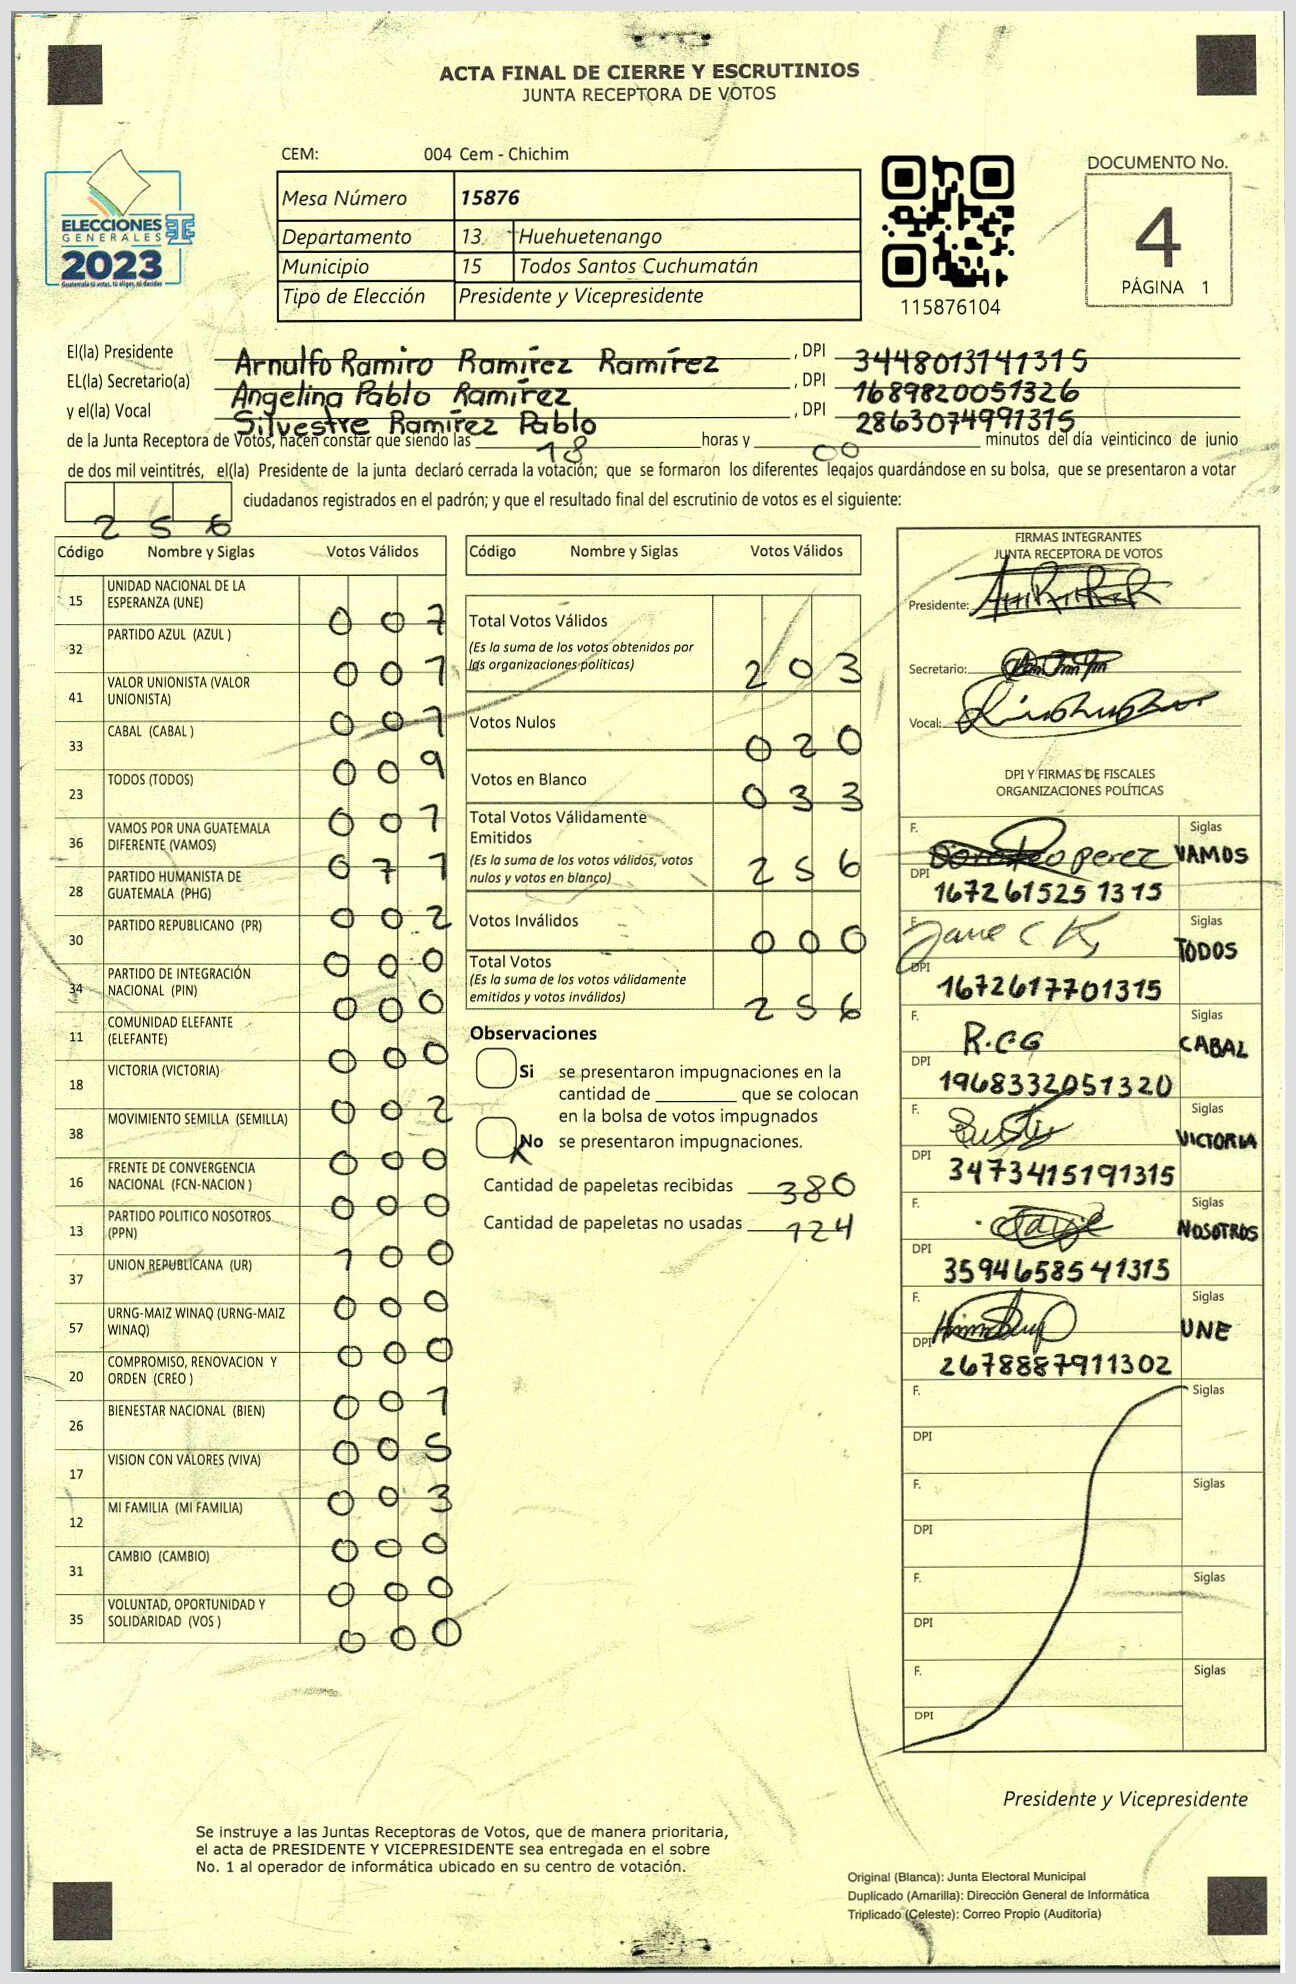 ACTA FINAL DE CIERRE Y ESCRUTINIOS
JUNTA RECEPTORA DE VOTOS
CEM: 004 Cem - Chichim
Mesa Número 15876
Departamento 13 Huehuetenango
Municipio 15 Todos Santos Cuchumatán
Tipo de Elección Presidente y Vicepresidente
ELECCIONES
GENERALES
2023
115876104
DOCUMENTO No.
4
PÁGINA 1
El(la) Presidente Arnulfo Ramiro Ramírez Ramírez , DPI 3448013141315
EL(la) Secretario(a) Angelina Pablo Ramírez , DPI 1689820051326
y el(la) Vocal Silvestre Ramírez Pablo , DPI 2863074991315
de la Junta Receptora de Votos, hacen constar que siendo las 18 horas y 00 minutos del día veinticinco de junio
de dos mil veintitrés, el(la) Presidente de la junta declaró cerrada la votación; que se formaron los diferentes legajos guardándose en su bolsa, que se presentaron a votar
256 ciudadanos registrados en el padrón; y que el resultado final del escrutinio de votos es el siguiente:
Código Nombre y Siglas Votos Válidos
15 UNIDAD NACIONAL DE LA ESPERANZA (UNE) 007
32 PARTIDO AZUL (AZUL ) 001
41 VALOR UNIONISTA (VALOR UNIONISTA) 001
33 CABAL (CABAL ) 009
23 TODOS (TODOS) 001
36 VAMOS POR UNA GUATEMALA DIFERENTE (VAMOS) 071
28 PARTIDO HUMANISTA DE GUATEMALA (PHG) 002
30 PARTIDO REPUBLICANO (PR) 000
34 PARTIDO DE INTEGRACIÓN NACIONAL (PIN) 000
11 COMUNIDAD ELEFANTE (ELEFANTE) 000
18 VICTORIA (VICTORIA) 002
38 MOVIMIENTO SEMILLA (SEMILLA) 000
16 FRENTE DE CONVERGENCIA NACIONAL (FCN-NACION ) 000
13 PARTIDO POLITICO NOSOTROS (PPN) 100
37 UNION REPUBLICANA (UR) 000
57 URNG-MAIZ WINAQ (URNG-MAIZ WINAQ) 000
20 COMPROMISO, RENOVACION Y ORDEN (CREO ) 001
26 BIENESTAR NACIONAL (BIEN) 005
17 VISION CON VALORES (VIVA) 003
12 MI FAMILIA (MI FAMILIA) 000
31 CAMBIO (CAMBIO) 000
35 VOLUNTAD, OPORTUNIDAD Y SOLIDARIDAD (VOS ) 000
Código Nombre y Siglas Votos Válidos
Total Votos Válidos 203
(Es la suma de los votos obtenidos por
las organizaciones políticas)
Votos Nulos 020
Votos en Blanco 033
Total Votos Válidamente
Emitidos 256
(Es la suma de los votos válidos, votos
nulos y votos en blanco)
Votos Inválidos 000
Total Votos 256
(Es la suma de los votos válidamente
emitidos y votos inválidos)
Observaciones
Si se presentaron impugnaciones en la
cantidad de ________ que se colocan
en la bolsa de votos impugnados
X No se presentaron impugnaciones.
Cantidad de papeletas recibidas 380
Cantidad de papeletas no usadas 124
FIRMAS INTEGRANTES
JUNTA RECEPTORA DE VOTOS
Presidente:
Secretario:
Vocal:
DPI Y FIRMAS DE FISCALES
ORGANIZACIONES POLÍTICAS
F. Doroteo perez Siglas VAMOS
DPI 1672615251315
F. Siglas TODOS
DPI 1672617701315
F. R.CG Siglas CABAL
DPI 1968332051320
F. Siglas VICTORIA
DPI 3473415191315
F. Siglas NOSOTROS
DPI 3594658541315
F. Siglas UNE
DPI 2678887911302
F. Siglas
DPI
F. Siglas
DPI
F. Siglas
DPI
F. Siglas
DPI
Presidente y Vicepresidente
Se instruye a las Juntas Receptoras de Votos, que de manera prioritaria,
el acta de PRESIDENTE Y VICEPRESIDENTE sea entregada en el sobre
No. 1 al operador de informática ubicado en su centro de votación.
Original (Blanca): Junta Electoral Municipal
Duplicado (Amarilla): Dirección General de Informática
Triplicado (Celeste): Correo Propio (Auditoría)